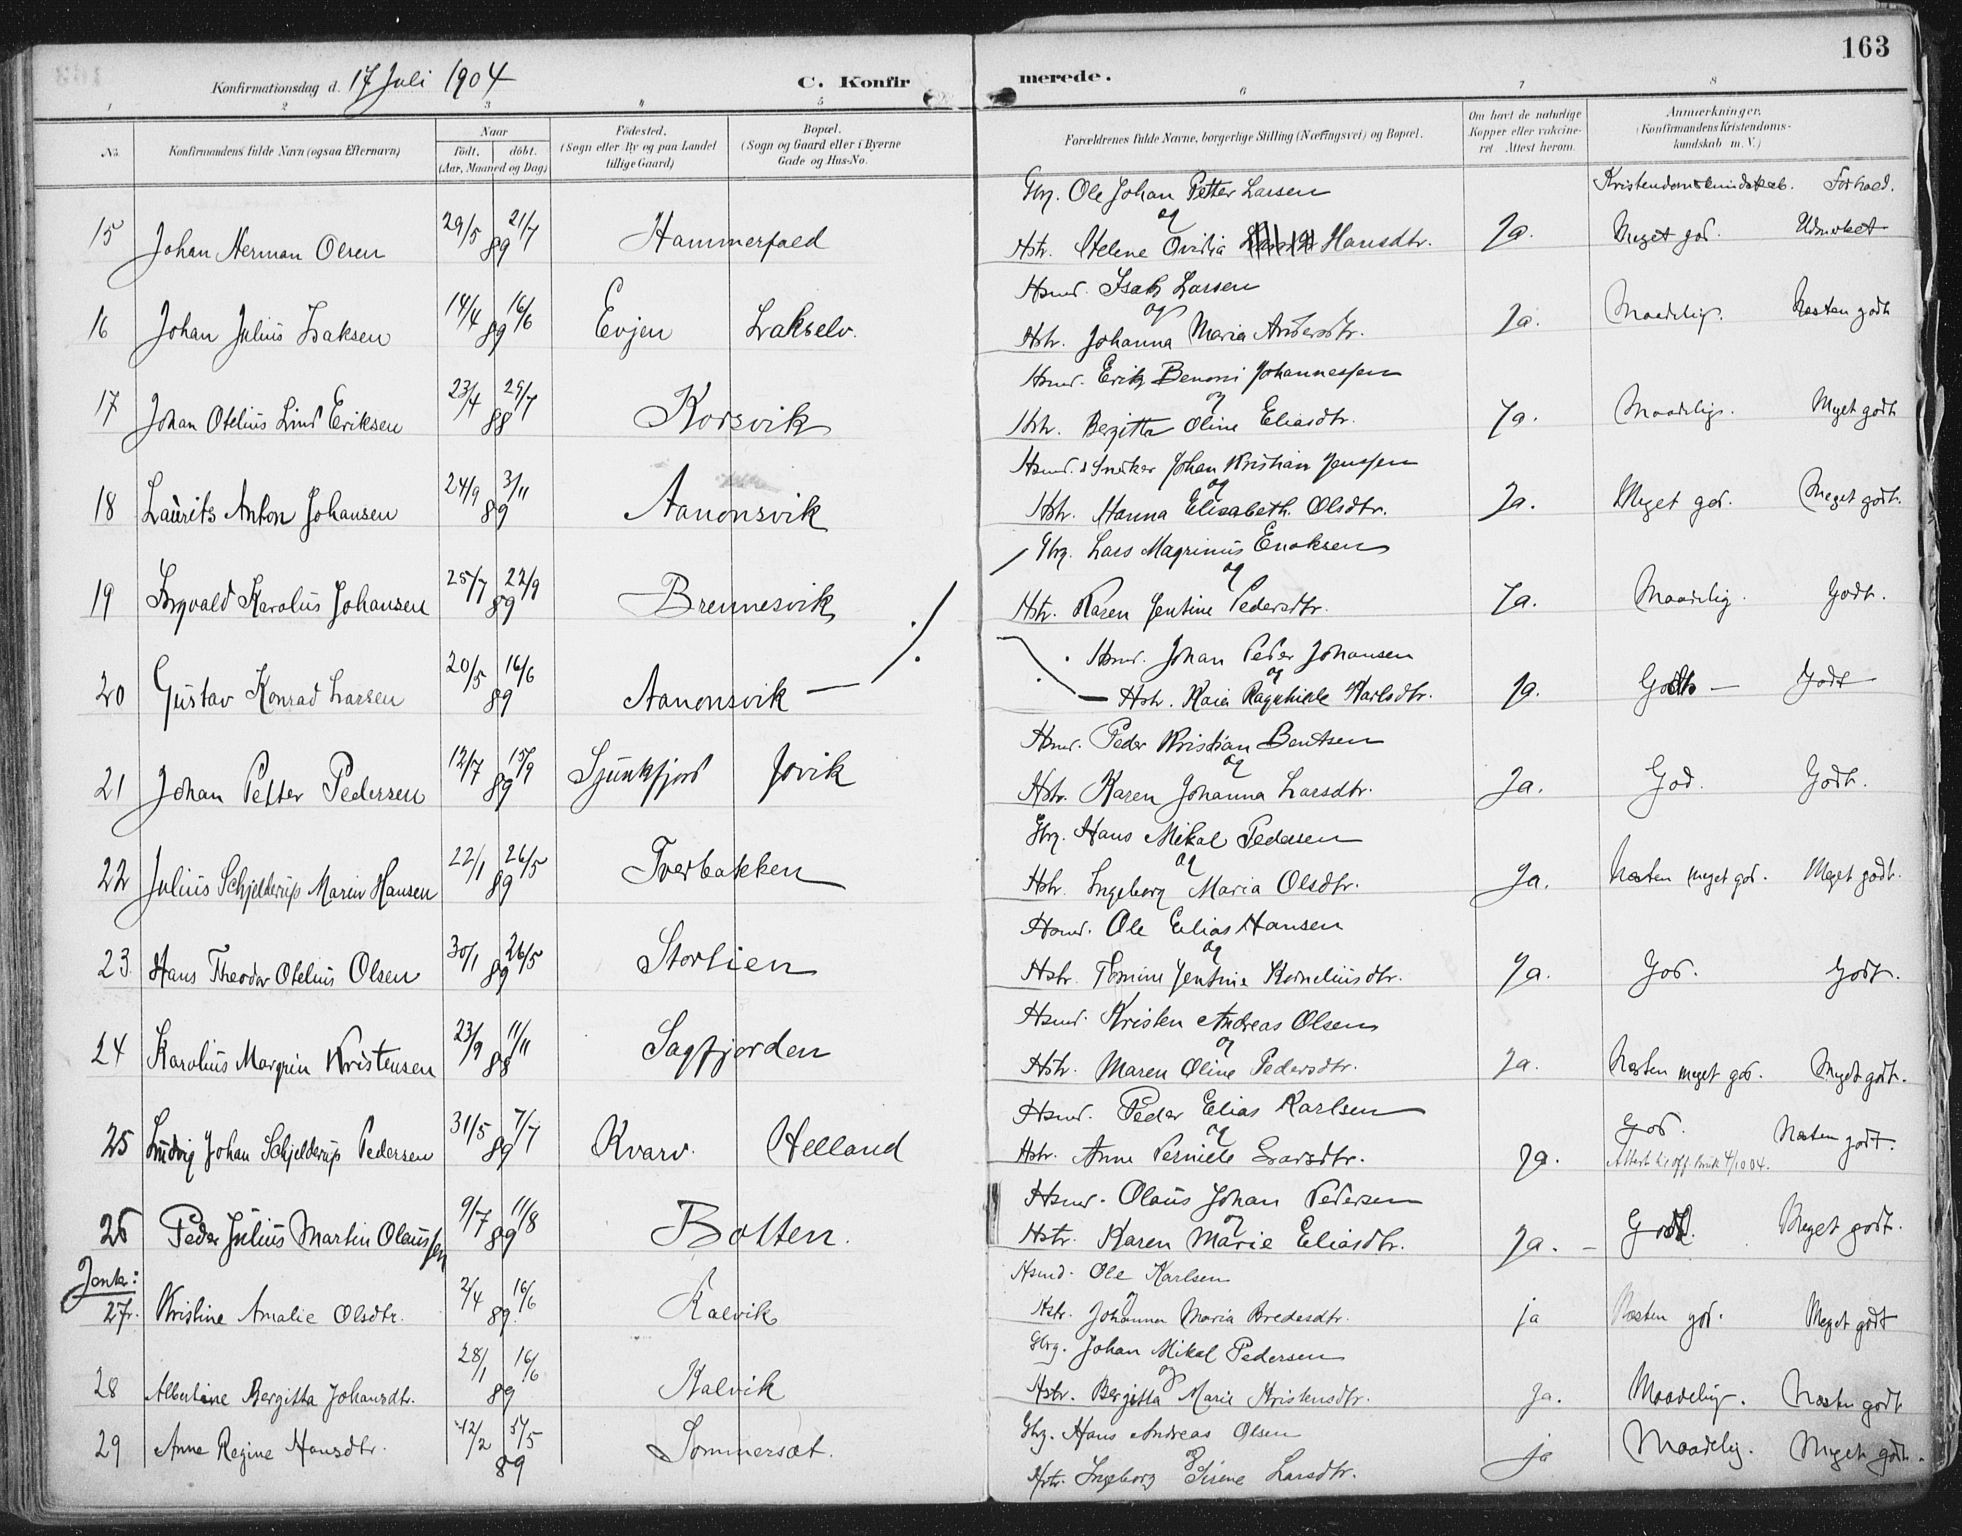 163
Konfirmationsdag d. 17 Juli 1904 C. Konfirmerede.
1 2 3 4 5 6 7 8
No. Konfirmandens fulde Navn (ogsaa Efternavn) Naar født. døbt. (Aar, Maaned og Dag) Fødested. (Sogn eller By og paa Landet tillige Gaard) Bopæl. (Sogn og Gaard eller i Byerne Gade og Hus-No. Forældrenes fulde Navne, borgerlige Stilling (Næringsvei) og Bopæl. Om havt de naturlige Kopper eller vakcineret. Attest herom. Anmærkninger. (Konfirmandens Kristendomskundskab m. V.)
Kristendomskundskab. Forhold.
Gbg. Ole Johan Petter Larsen
og
15 Johan Herman Olsen 29/5 21/7 89 Hammerfald Hstr. Helene Ovidia Hansdtr. Ja. Meget god. Udmerket
Hsmd. Isak Larsen
og
16 Johan Julius Isaksen 14/4 16/6 89 Evjen Lakselv. Hstr. Johanna Maria Andersdtr. Ja. Maadelig. Næsten godt
Hsmd. Erik Benoni Johannessen
og
17 Johan Otelius Lind Eriksen 23/4 29/7 88 Korsvik Hstr. Bergitta Oline Eliasdtr. Ja. Maadelig. Meget godt
Hsmd. & Snedker Johan Kristian Jenssen
og
18 Laurits Anton Johansen 24/9 3/11 89 Aanonsvik Hstr. Hanna Elisabeth Olsdtr. Ja. Meget god. Meget godt.
Gbg. Lars Magrinus Enoksen
og
19 Ingvald Karolius Johansen 25/7 22/9 89 Brennesvik Hstr. Karen Jentine Pedersdtr. Ja. Maadelig. Godt.
Hsmd. Johan Peder Johansen
og
20 Gustav Konrad Larsen 20/5 16/6 89 Aanonsvik Hstr. Kaia Ragnhilde Karlsdtr. Ja. God Godt
Hsmd. Peder Kristian Bentsen
og
21 Johan Petter Pedersen 12/7 15/9 89 Sjunkfjord Jovik Hstr. Karen Johanna Larsdtr. Ja. God. Godt.
Gbg. Hans Mikal Pedersen
og
22 Julius Schjelderup Marin Hansen 22/1 26/5 89 Tverbakken Hstr. Ingeborg Maria Olsdtr. Ja. Næsten meget god. Meget godt.
Hsmd. Ole Elias Hansen
og
23 Hans Theodor Otelius Olsen 30/1 26/5 89 Storlien Hstr. Tomine Jentine Korneliusdtr. Ja. God. Godt.
Hsmd. Kristen Andreas Olsen
og
24 Karolius Margrin Kristensen 23/9 11/11 88 Sagfjorden Hstr. Maren Oline Pedersdtr. Ja. Næsten meget god. Meget godt.
Hsmd. Peder Elias Karlsen
og God. Næsten godt.
25 Ludvig Johan Schjelderup Pedersen 31/5 7/7 89 Kvarv. Helland Hstr. Anne Pernille Larsdtr. Ja. Attest til off. Bruk 4/10 04.
Hsmd. Olaus Johan Pedersen
og
26 Peder Julius Martin Olaussen 9/7 11/8 89 Botten. Hstr. Karen Marie Eliasdtr. Ja. God. Meget godt.
Jenter:
Hsmd. Ole Karlsen
og
27. Kristine Amalie Olsdtr. 2/4 16/6 89. Kalvik Hstr. Johanna Maria Bredesdtr. ja Næsten god. Meget godt
Gbrg. Johan Mikal Pedersen
og
28 Albertine Bergitta Johansdtr. 28/1 16/6 89 Kalvik Hstr. Bergitta Marie Kristensdtr. Ja. Maadelig. Næsten godt
Gbg. Hans Andreas Olsen
og
29 Anne Regine Hansdtr. 12/2 5/5 89 Sommersæt. Hstr. Ingeborg Sirene Larsdtr. ja Maadelig. Meget godt.